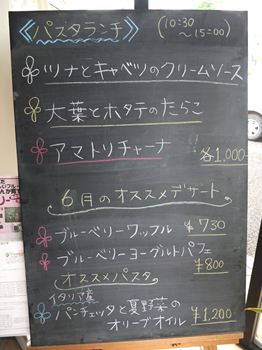 《パスタランチ》
(10:30
~15:00)
ツナとキャベツのクリームソース
大葉とホタテのたらこ
アマトリチャーナ
各1,000-
6月のオススメデザート
ブルーベリーワッフル ¥730
ブルーベリーヨーグルトパフェ
¥800
オススメパスタ
イタリア産
パンチェッタと夏野菜の
オリーブオイル ¥1,200